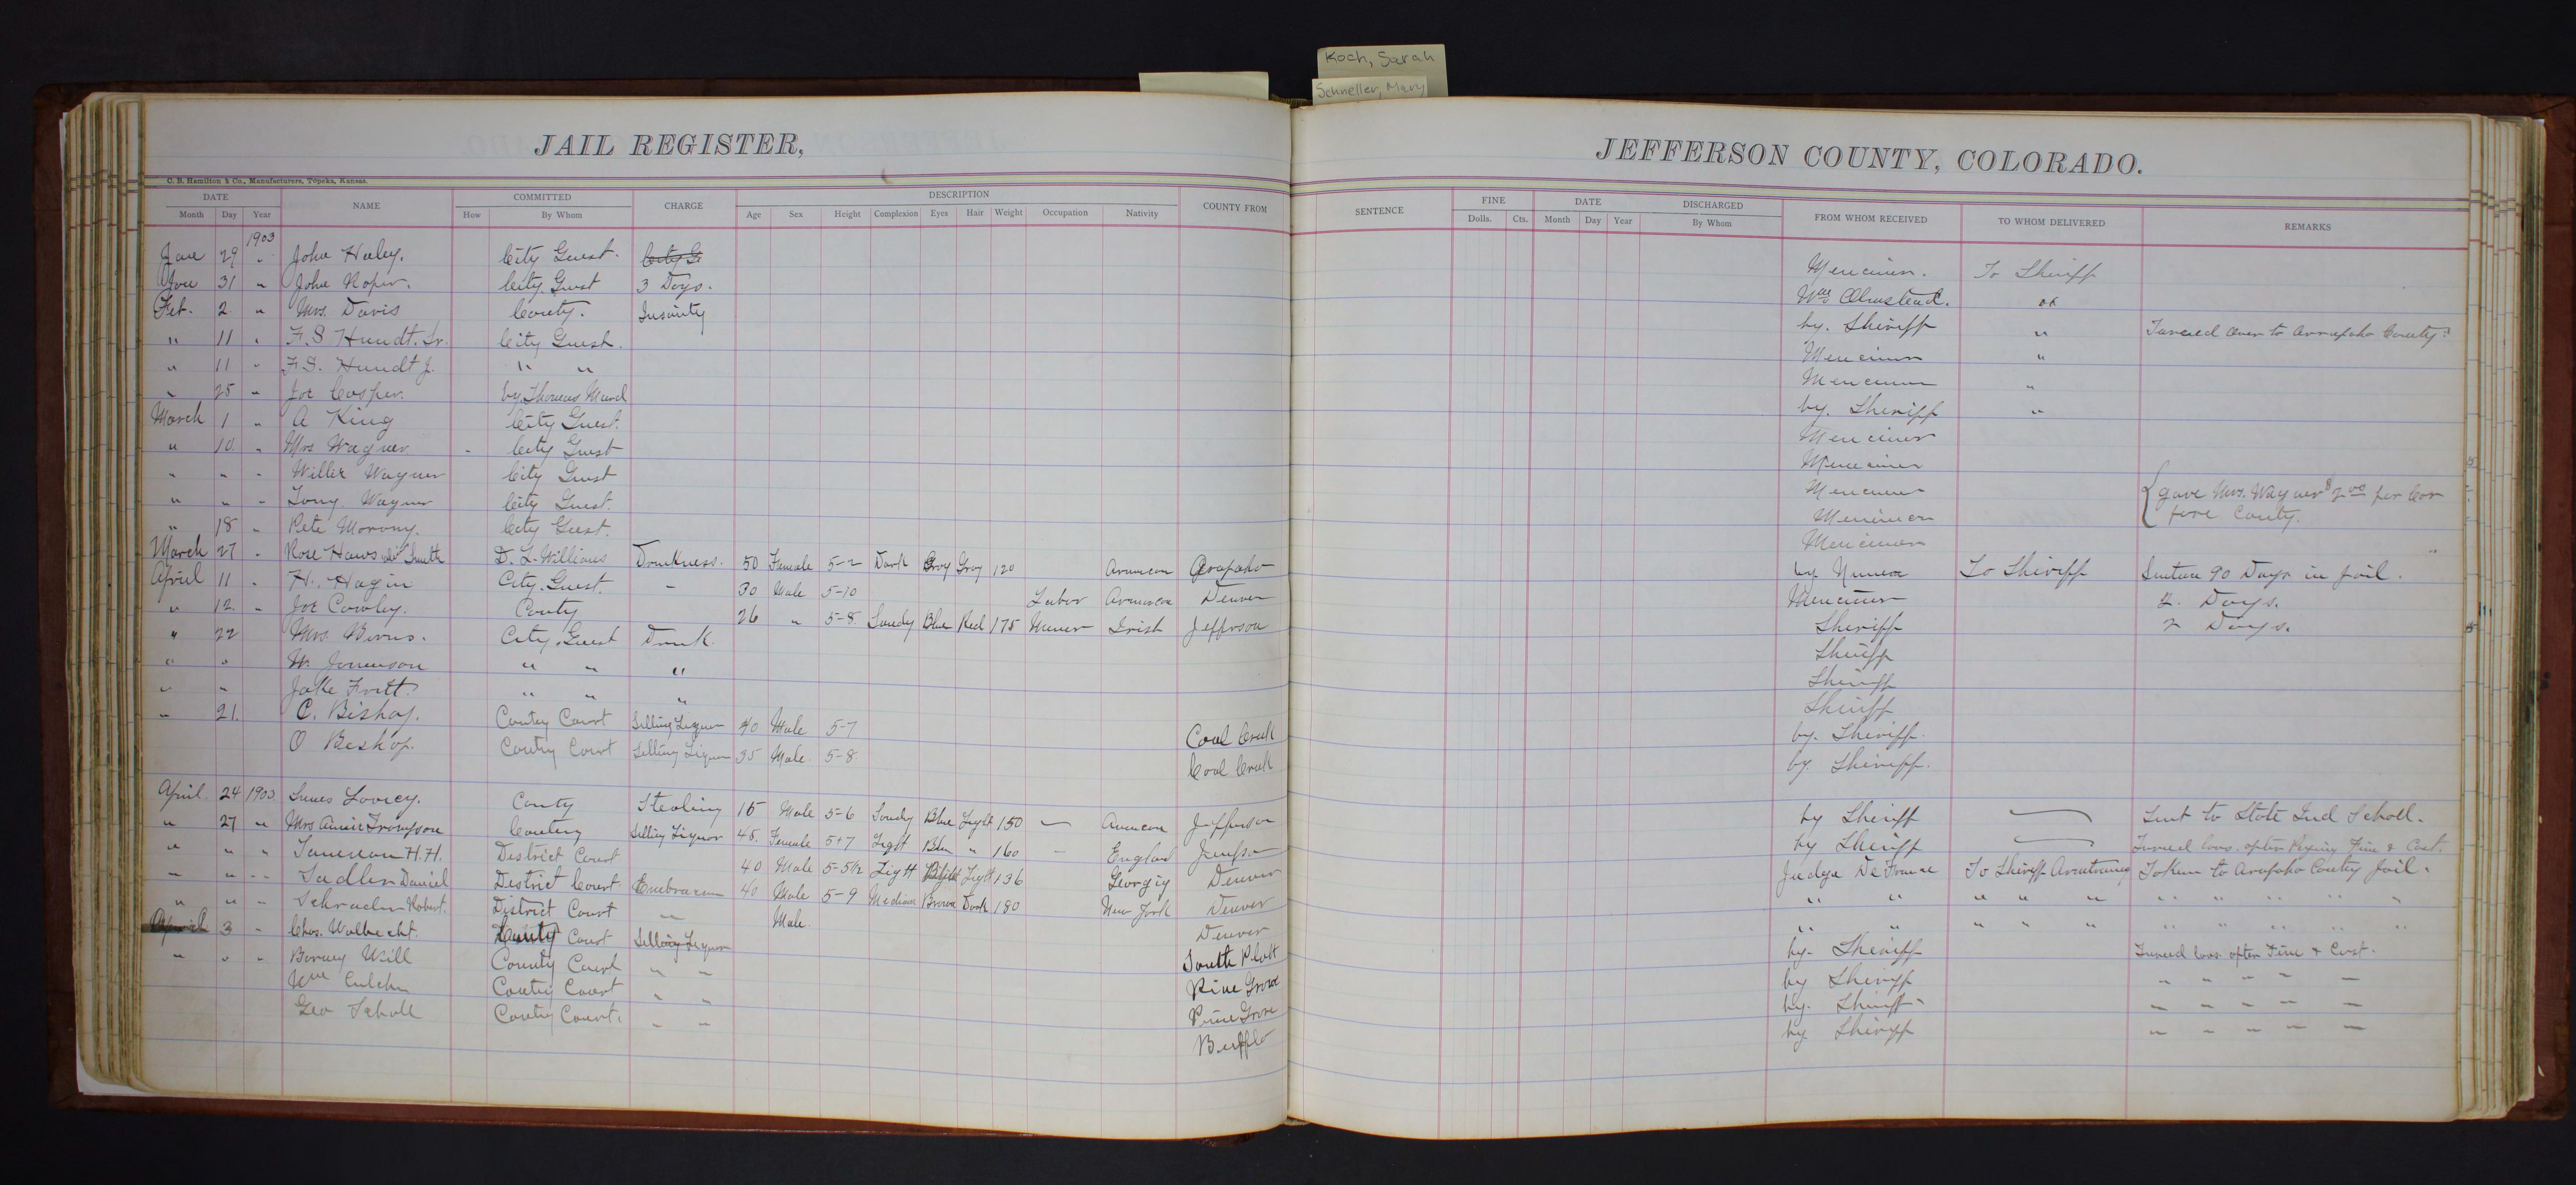 Koch, Sarah
Schneller, Mary
JAIL REGISTER, JEFFERSON COUNTY, COLORADO.
C. B. Hamilton & Co., Manufacturers, Topeka, Kansas.
DATE NAME COMMITTED CHARGE DESCRIPTION COUNTY FROM SENTENCE FINE DATE DISCHARGED FROM WHOM RECEIVED TO WHOM DELIVERED REMARKS
Month Day Year How By Whom Age Sex Height Complexion Eyes Hair Weight Occupation Nativity Dolls. Cts. Month Day Year By Whom
1903
Jan 29 " John Haley. City Guest. To Sheriff
Jan 31 " John Roper. City Guest 3 Days. Wm Olmstead. ok
Feb. 2. " Mrs. Davis County. Insanity by. Sheriff " Turned over to Arrapaho County.
" 11 " F. S Hundt. Sr. City Guest. "
" 11 " F. S. Hundt J. " " "
" 25 " Joe Casper. by Thomas by. Sheriff "
March 1 " A King City Guest.
" 10. " Mrs Wagner - City Guest
" " " Willer Wagner City Guest
" " " Tony. Wagner City Guest. { gave Mrs. Wagner $2 00 per Car
" 18 " Pete Morony. City Guest. fare County.
March 27 " Rose Haws Smith D. L. Williams Drunkness. 50 Female 5-2 Dark Gray Gray 120 American Arapaho by To Sheriff Sentence 90 Days in jail.
April 11 " H. Hagin City. Guest. - 30 Male 5-10 Labor American Denver 2. Days.
" 12. " Joe Cowley. County 26 " 5-8 Sandy Blue Red 175 Miner Irish Jefferson Sheriff 2 Days.
" 22 Mrs. Burns. City. Guest Drunk. Sheriff
" " W. " " " Sheriff
" " Jake Fritt. " " " Sheriff
" 21. C. Bishop. County Court Selling Liquor 40 Male 5-7 Coal Creek by. Sheriff.
O Bishop. County Court Selling Liquor 35 Male. 5-8 Coal Creek by. Sheriff.
April 24 1903 Lovey. County Stealing 15 Male 5-6 Sandy Blue Light 150 — American Jefferson by Sheriff — Sent to State Ind School.
" 27 " Mrs Annie Thompson County Selling Liquor 45. Female 5-7 Light Blue " 160 — England by Sheriff — Turned loos. after Paying Fine & Cost.
" " " H. H. District Court 40 Male 5-5½ Light Light 136 Georgia Denver Judge De France To Sheriff Armstrong Taken to Arapaho County Jail.
" " " Sadler Daniel District Court. 40 Male 5-9 Medium Brown Dark 180 New York Denver " " " " " " " " " "
" " " Schrader Robert. District Court " Male Denver " " " " " " " " " "
3 " Chas. Walbrecht. County Court Selling Liquor South Platt by. Sheriff Turned loos after Fine & Cost.
" " Barney Will County Court " " Pine Grove by Sheriff " " " " —
Wm County Court " " Pine Grove by. Sheriff. " " " " —
Geo Scholl County Court. " " Bufflo by Sheriff " " " " —